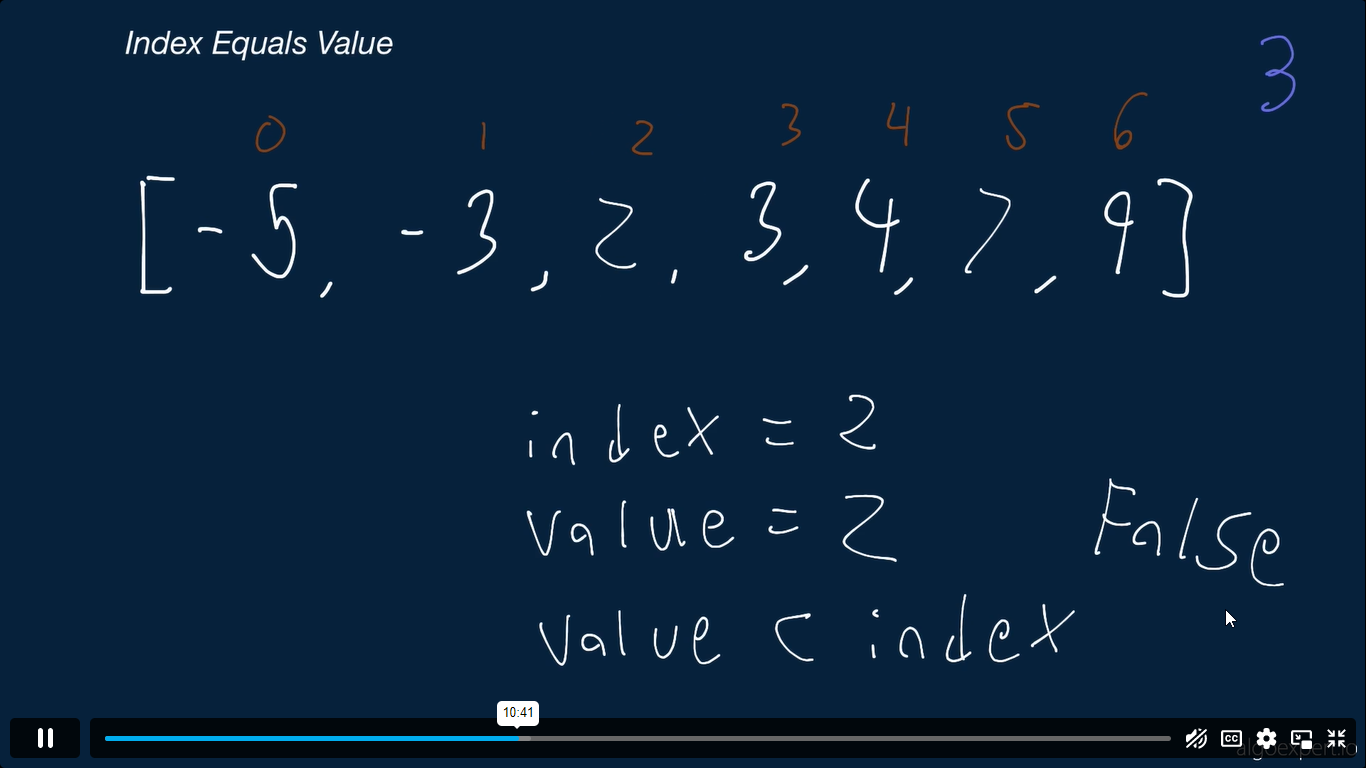 Index Equals Value
3
0 1 2 3 4 5 6
[-5, -3, 2, 3, 4, 7, 9]
index = 2
value = 2
False
value < index
10:41
CC
algoexpert.io